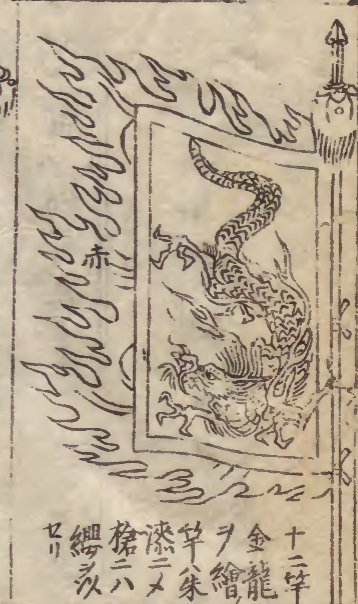 赤
十二竿
金龍
ヲ繪
竿ハ朱
漆ニメ
槍ニハ
纓ヲ以
セリ